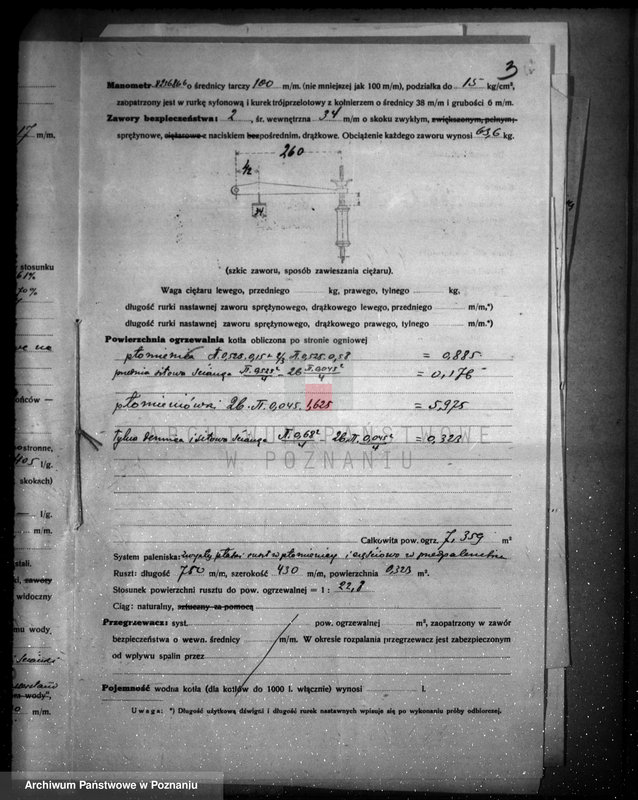 3
Manometr 8216866 o średnicy tarczy 100 m/m. (nie mniejszej jak 100 m/m), podziałka do 15 kg/cm²,
zaopatrzony jest w rurkę syfonową i kurek trójprzelotowy z kołnierzem o średnicy 38 m/m i grubości 6 m/m.
Zawory bezpieczeństwa: 2, śr. wewnętrzna 34 m/m o skoku zwykłym, zwiększonym, pełnym,
sprężynowe, ciężarowe z naciskiem bezpośrednim, drążkowe. Obciążenie każdego zaworu wynosi 63,6 kg.
260
42
24
(szkic zaworu, sposób zawieszania ciężaru).
Waga ciężaru lewego, przedniego kg, prawego, tylnego kg,
długość rurki nastawnej zaworu sprężynowego, drążkowego lewego, przedniego m/m,*)
długość rurki nastawnej zaworu sprężynowego, drążkowego prawego, tylnego m/m,*)
Powierzchnia ogrzewalna kotła obliczona po stronie ogniowej
płomienica = 0,885
przednia sitowa ściana = 0,176
płomieniówki 26.π.0,045.1,625 = 5,975
tylna dennica i sitowa ściana π.0,68²/4 - 26.π.0,045²/4 = 0,323
ARCHIWUM PAŃSTWOWE
W POZNANIU
Całkowita pow. ogrz. 7,359 m²
System paleniska: zwykły płaski ruszt w płomienicy i częściowo w przedpalenisku
Ruszt: długość 750 m/m, szerokość 430 m/m, powierzchnia 0,323 m².
Stosunek powierzchni rusztu do pow. ogrzewalnej = 1 : 22,8
Ciąg: naturalny, sztuczny za pomocą
Przegrzewacz: syst. pow. ogrzewalnej m², zaopatrzony w zawór
bezpieczeństwa o wewn. średnicy m/m. W okresie rozpalania przegrzewacz jest zabezpieczonym
od wpływu spalin przez
Pojemność wodna kotła (dla kotłów do 1000 l. włącznie) wynosi l.
Uwaga: *) Długość użytkową dźwigni i długość rurek nastawnych wpisuje się po wykonaniu próby odbiorczej.
17 m/m.
stosunku
61%
70%
ońców —
ostronne,
405 l/g.
skokach)
— l/g.
m/m.
stali.
ki, zawory
widoczny
mu wody
m/m.
Archiwum Państwowe w Poznaniu